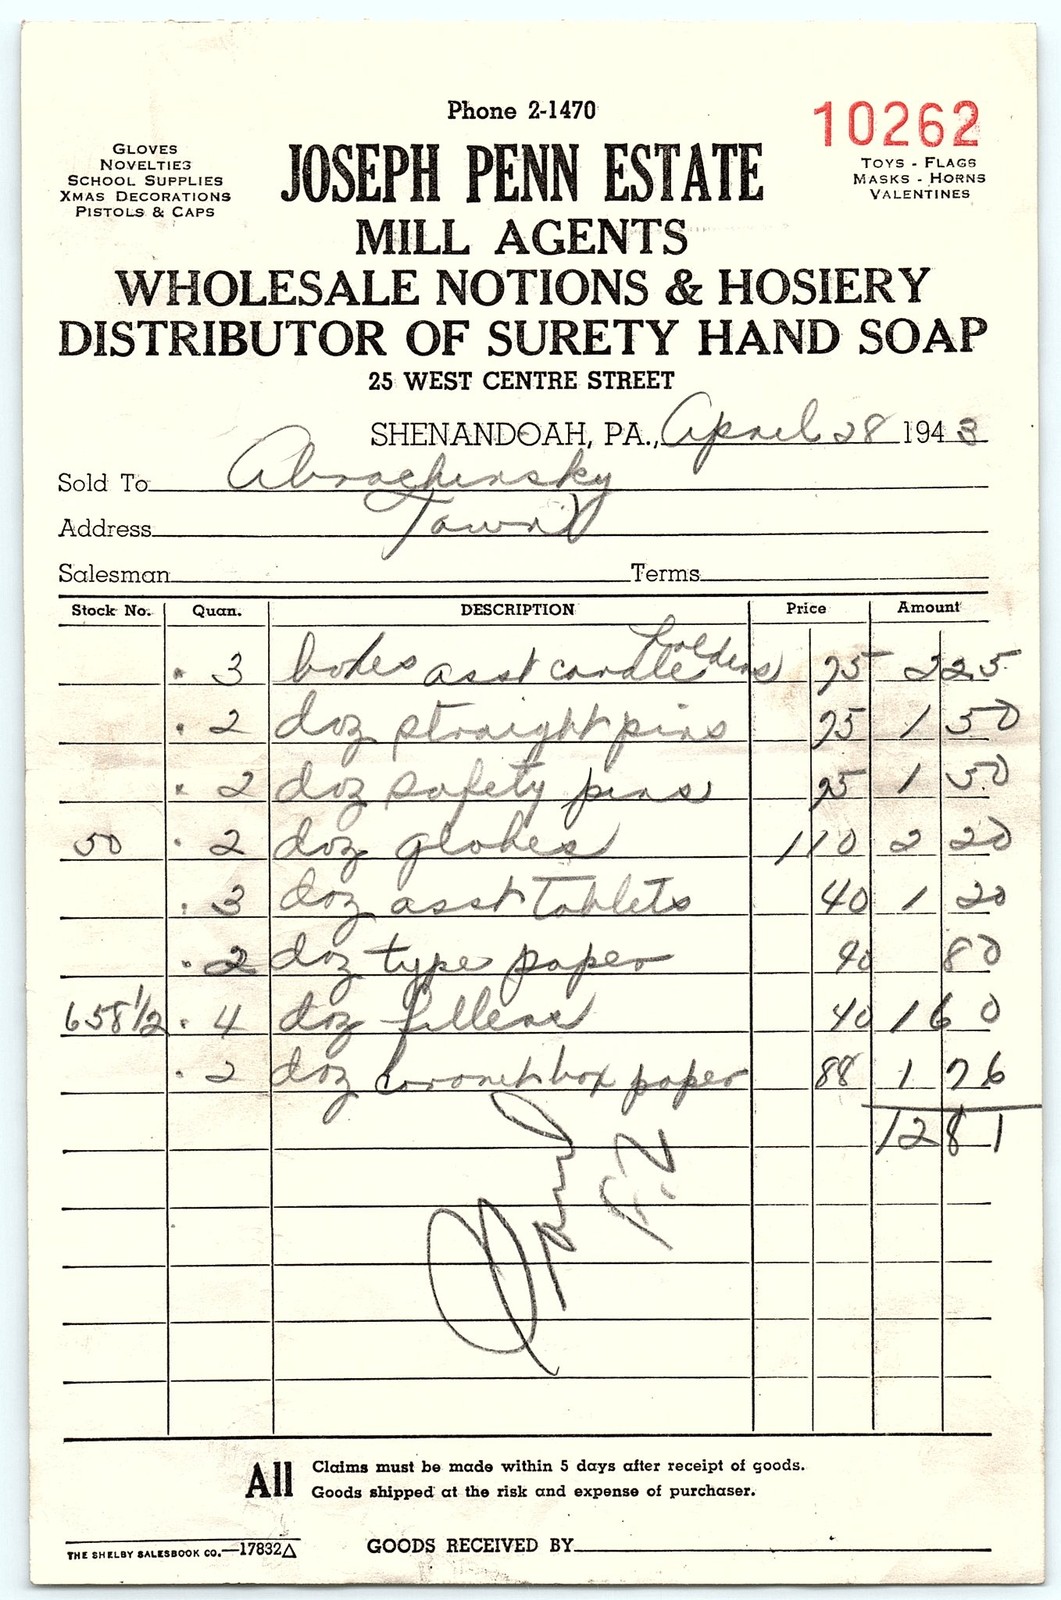 Phone 2-1470
10262
GLOVES
NOVELTIES
SCHOOL SUPPLIES
XMAS DECORATIONS
PISTOLS & CAPS
JOSEPH PENN ESTATE
TOYS - FLAGS
MASKS - HORNS
VALENTINES
MILL AGENTS
WHOLESALE NOTIONS & HOSIERY
DISTRIBUTOR OF SURETY HAND SOAP
25 WEST CENTRE STREET
SHENANDOAH, PA., April 28 1943
Sold To Abrachinsky
Address Town
Salesman Terms
Stock No. Quan. DESCRIPTION Price Amount
3 boxes asst candle holders 75 2 25
2 doz straight pins 75 1 50
2 doz safety pins 75 1 50
50 2 doz globes 1 10 2 20
3 doz asst Tablets 40 1 20
2 doz type paper 40 80
658 1/2 4 doz fillers 40 1 60
2 doz coronet box paper 88 1 76
12 81
Paid
All Claims must be made within 5 days after receipt of goods.
Goods shipped at the risk and expense of purchaser.
THE SHELBY SALESBOOK CO.—17832△ GOODS RECEIVED BY